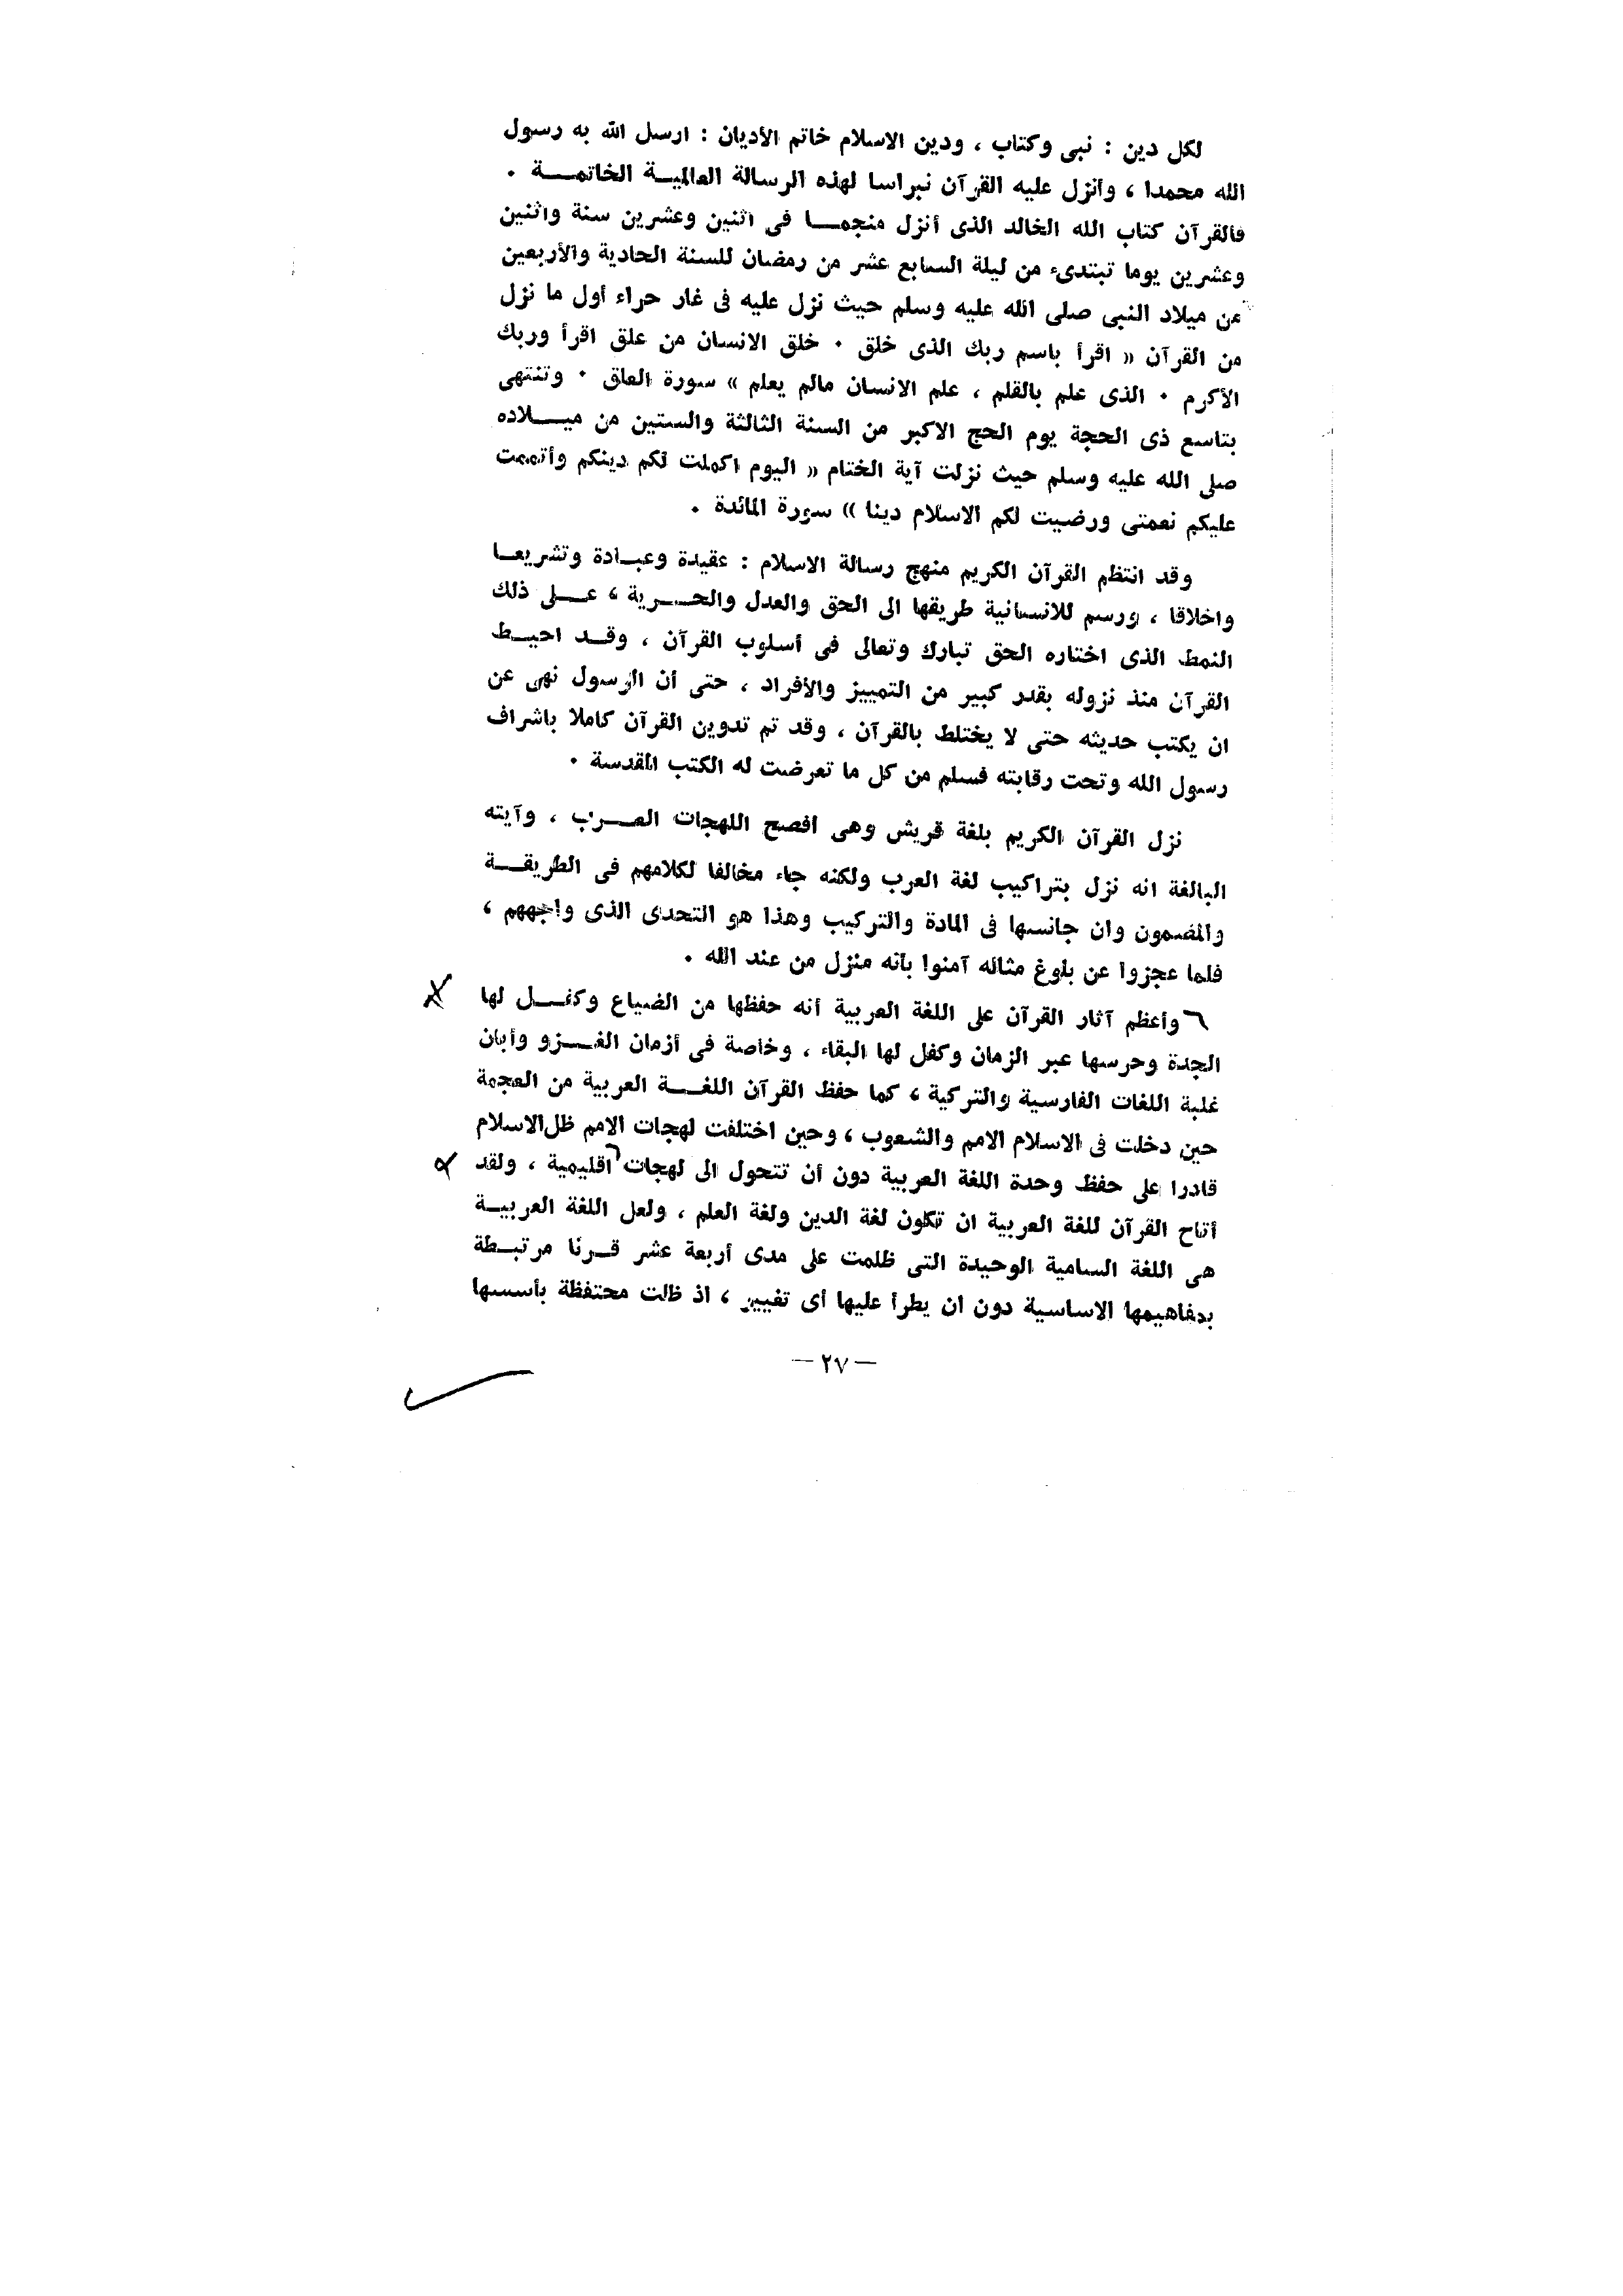 لكل دين : نبى وكتاب ، ودين الاسلام خاتم الأديان : ارسل الله به رسول
الله محمدا ، وأنزل عليه القرآن نبراسا لهذه الرسالة العالمية الخاتمة .
فالقرآن كتاب الله الخالد الذى أنزل منجما فى اثنين وعشرين سنة واثنين
وعشرين يوما تبتدىء من ليلة السابع عشر من رمضان للسنة الحادية والأربعين
من ميلاد النبى صلى الله عليه وسلم حيث نزل عليه فى غار حراء أول ما نزل
من القرآن « اقرأ باسم ربك الذى خلق . خلق الانسان من علق اقرأ وربك
الأكرم . الذى علم بالقلم ، علم الانسان مالم يعلم » سورة العلق . وتنتهى
بتاسع ذى الحجة يوم الحج الاكبر من السنة الثالثة والستين من ميلاده
صلى الله عليه وسلم حيث نزلت آية الختام « اليوم اكملت لكم دينكم وأتممت
عليكم نعمتى ورضيت لكم الاسلام دينا » سورة المائدة .
وقد انتظم القرآن الكريم منهج رسالة الاسلام : عقيدة وعبادة وتشريعا
واخلاقا ، ورسم للانسانية طريقها الى الحق والعدل والحرية ، على ذلك
النمط الذى اختاره الحق تبارك وتعالى فى أسلوب القرآن ، وقد احيط
القرآن منذ نزوله بقدر كبير من التمييز والأفراد ، حتى أن الرسول نهى عن
ان يكتب حديثه حتى لا يختلط بالقرآن ، وقد تم تدوين القرآن كاملا باشراف
رسول الله وتحت رقابته فسلم من كل ما تعرضت له الكتب المقدسة .
نزل القرآن الكريم بلغة قريش وهى افصح اللهجات العرب ، وآيته
البالغة انه نزل بتراكيب لغة العرب ولكنه جاء مخالفا لكلامهم فى الطريقة
والمضمون وان جانسها فى المادة والتركيب وهذا هو التحدى الذى واجههم ،
فلما عجزوا عن بلوغ مثاله آمنوا بأنه منزل من عند الله .
وأعظم آثار القرآن على اللغة العربية أنه حفظها من الضياع وكفل لها
الجدة وحرسها عبر الزمان وكفل لها البقاء ، وخاصة فى أزمان الغزو وأبان
غلبة اللغات الفارسية والتركية ، كما حفظ القرآن اللغة العربية من العجمة
حين دخلت فى الاسلام الامم والشعوب ، وحين اختلفت لهجات الامم ظل الاسلام
قادرا على حفظ وحدة اللغة العربية دون أن تتحول الى لهجات اقليمية ، ولقد
أتاح القرآن للغة العربية ان تكون لغة الدين ولغة العلم ، ولعل اللغة العربية
هى اللغة السامية الوحيدة التى ظلمت على مدى أربعة عشر قرنا مرتبطة
بمفاهيمها الاساسية دون ان يطرأ عليها أى تغيير ، اذ ظلت محتفظة بأسسها
— ٢٧ —